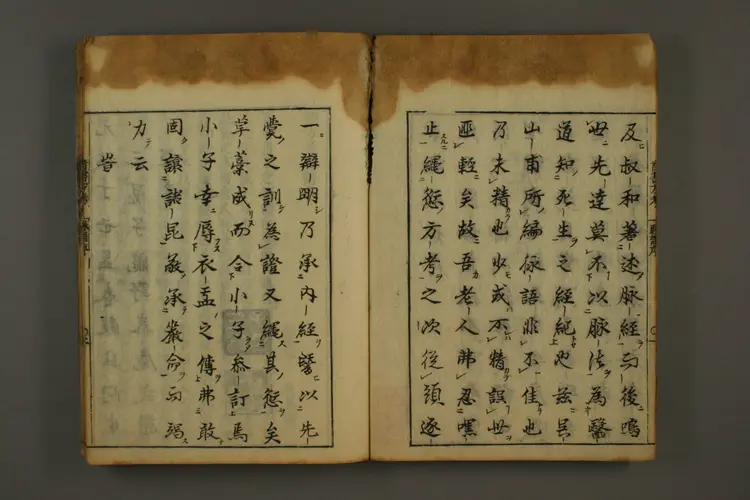 及叔和著述脉經而後嗚
世先達莫不以脉法為醫
道知死生之經紀也茲吴
山甫所編俗語非不佳也
乃未精也少或不精誤世
匪輕矣故吾老人弗忍嘿
止繩愆方考之次從頭逐
一辯明乃承内經暨以先
覺之訓為證又繩其愆矣
草藁成而令小子参訂焉
小子幸辱衣盂之傳弗敢
固讓詺昆敬承嚴命而竭
力云
旹